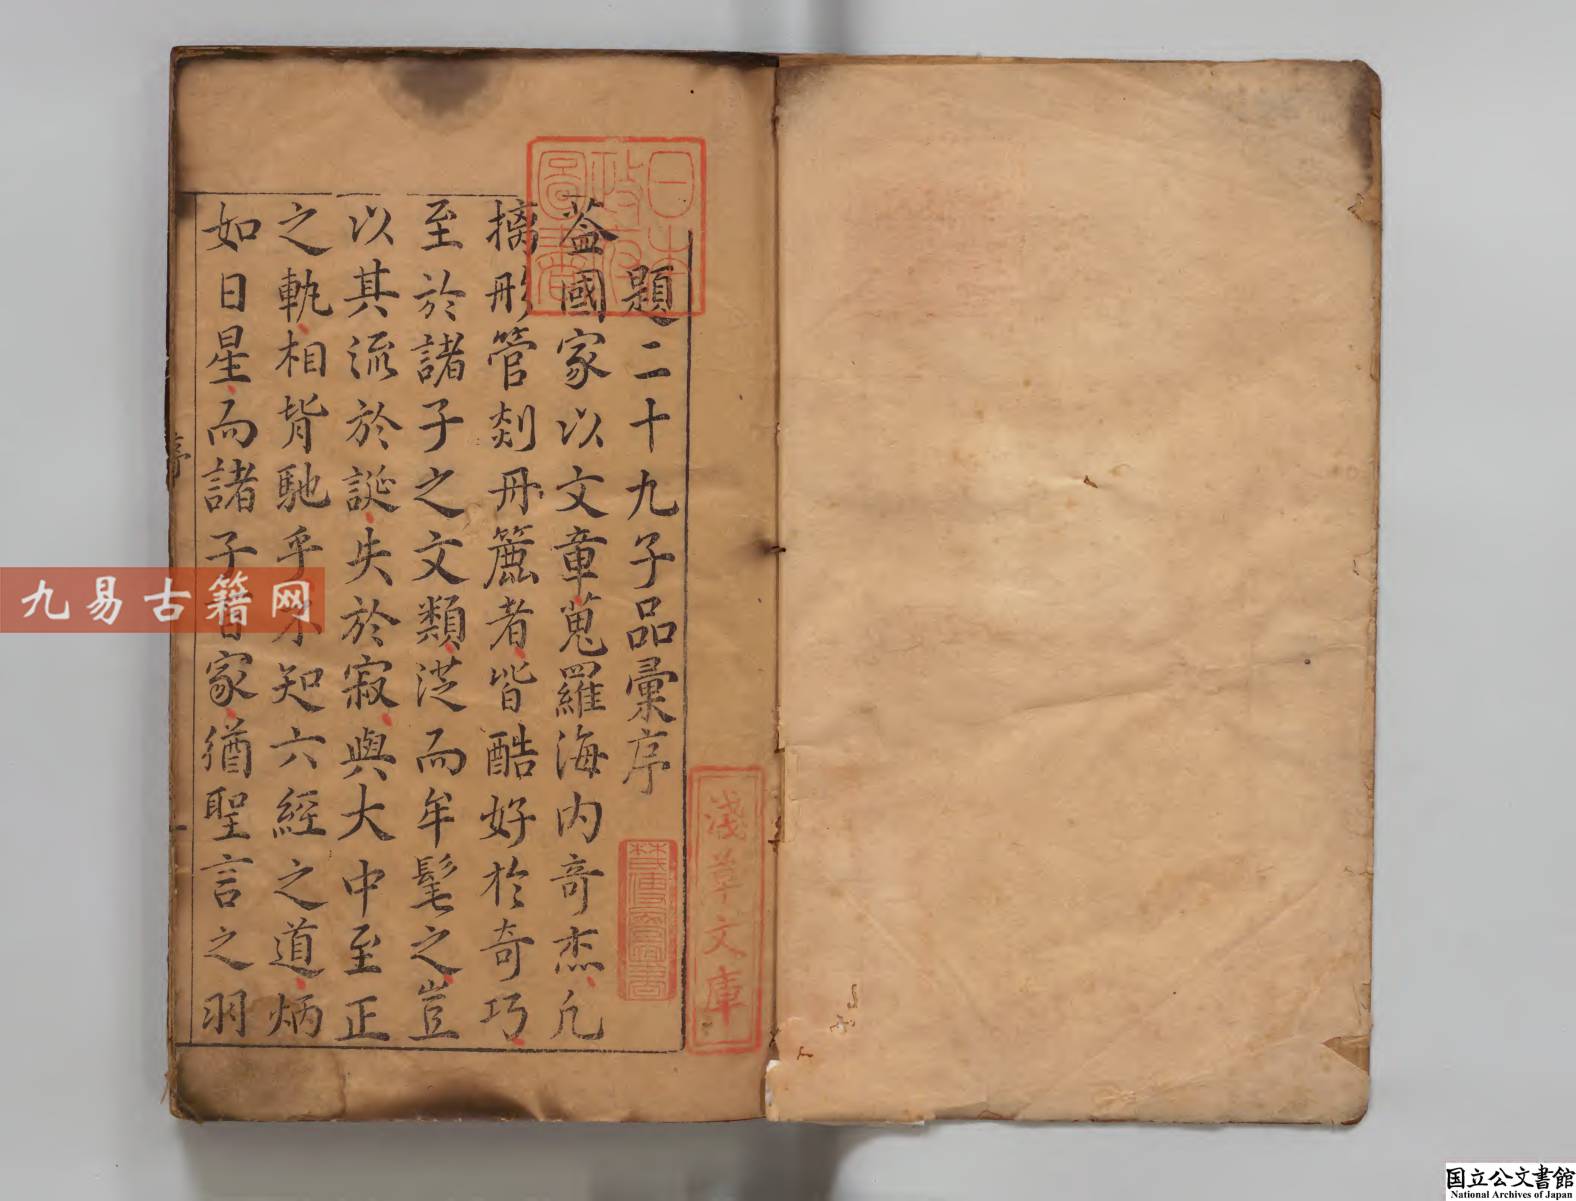 題二十九子品彙序
葢國家以文章蒐羅海内奇杰凢
摛彤管剡冊簏者皆酷好於奇巧
至於諸子之文類漭而牟髦之豈
以其流於誕失於寂與大中至正
之軌相背馳乎不知六經之道炳
如日星而諸子百家猶聖言之羽
日本政府圖書
淺草文庫
九易古籍网
国立公文書館
National Archives of Japan